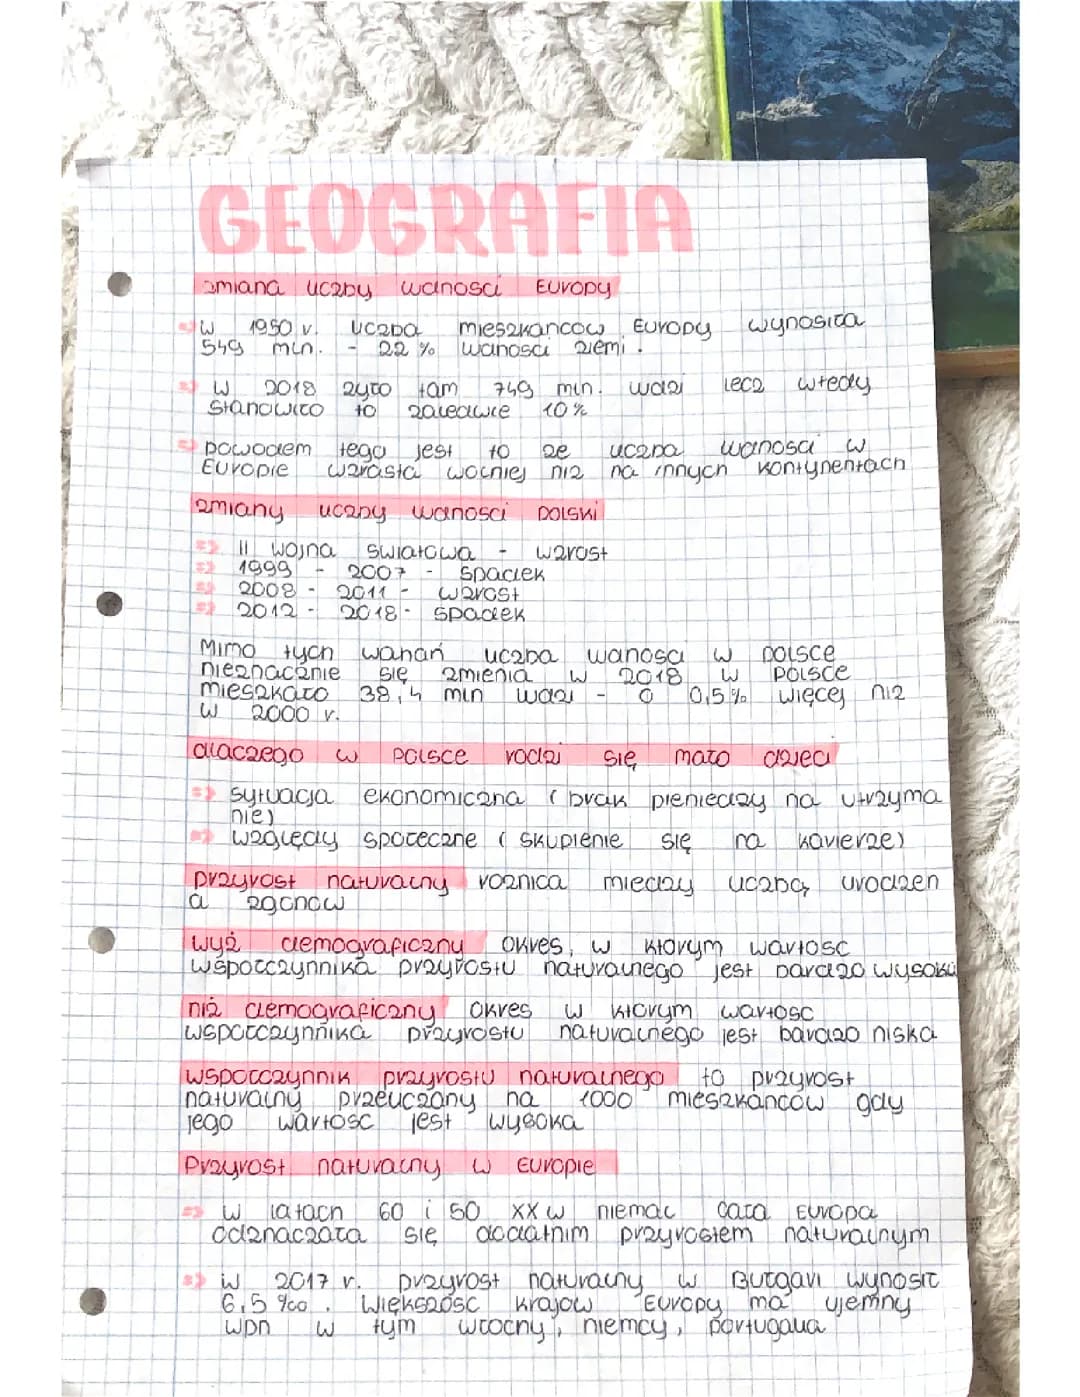 GEOGRAFIA
zmiana liczby ludności Europy
=> W 1950 r. liczba mieszkańcow Europy wynosiła
549 mln. - 22 % ludnosci ziemi.
=> W 2018 zyło tam 749 mln. ludzi lecz wtedy
stanowiło to zaledwie 10%
=> powodem tego jest to ze liczba ludnosci w
Europie wzrasta wolniej niz na innych kontynentach
zmiany liczby ludnosci polski
=> II wojna swiatowa - wzrost
=> 1999 - 2007 - spadek
=> 2008 - 2011 - wzrost
=> 2012 - 2018 - spadek
Mimo tych wahań liczba ludnosci w polsce
nieznacznie się zmienia w 2018 w polsce
mieszkało 38,4 mln ludzi - o 0,5% więcej niz
w 2000 r.
dlaczego w polsce rodzi się mało dzieci
=> sytuacja ekonomiczna ( brak pieniedzy na utrzyma
nie)
=> względy społeczne ( skupienie się na karierze)
przyrost naturalny roznica miedzy liczbą urodzen
a zgonow
wyż demograficzny okres, w ktorym wartosc
wspołczynnika przyrostu naturalnego jest bardzo wysoka
niż demograficzny okres w ktorym wartosc
wspołczynnika przyrostu naturalnego jest bardzo niska
wspołczynnik przyrostu naturalnego to przyrost
naturalny przeliczony na 1000 mieszkańców gdy
jego wartosc jest wysoka
Przyrost naturalny w Europie
=> w latach 60 i 50 XX w niemal cała Europa
odznaczała się dodatnim przyrostem naturalnym
=> w 2017 r. przyrost naturalny w Bułgari wynosił
6,5 ‰. Większosc krajow Europy ma ujemny
wpn w tym włochy, niemcy, portugalia